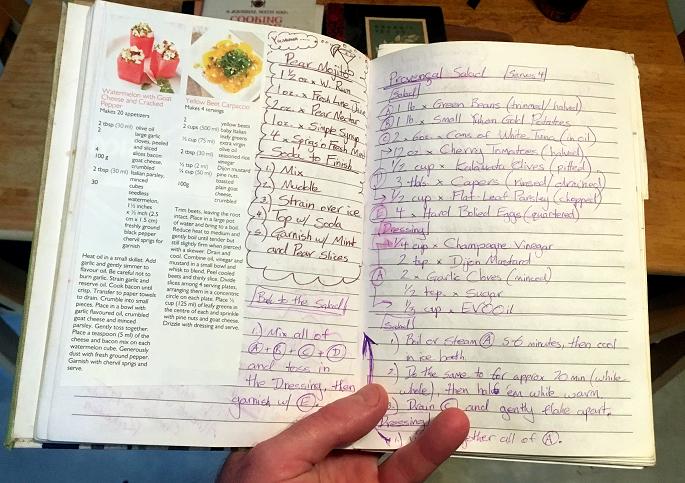 COOKING
Watermelon with Goat
Cheese and Cracked
Pepper
Makes 20 appetizers
2 tbsp (30 ml) olive oil
2 large garlic
cloves, peeled
and sliced
4 slices bacon
100 g goat cheese,
crumbled
2 tbsp (30 ml) Italian parsley,
minced
30 cubes
seedless
watermelon,
1½ inches
x ½ inch (2.5
cm x 1.5 cm)
freshly ground
black pepper
chervil sprigs for
garnish
Heat oil in a small skillet. Add
garlic and gently simmer to
flavour oil. Be careful not to
burn garlic. Strain garlic and
reserve oil. Cook bacon until
crisp. Transfer to paper towels
to drain. Crumble into small
pieces. Place in a bowl with
garlic flavoured oil, crumbled
goat cheese and minced
parsley. Gently toss together.
Place a teaspoon (5 ml) of the
cheese and bacon mix on each
watermelon cube. Generously
dust with fresh ground pepper.
Garnish with chervil sprigs and
serve.
Yellow Beet Carpaccio
Makes 4 servings
2 yellow beets
2 cups (500 ml) baby Italian
leafy greens
⅓ cup (75 ml) extra virgin
olive oil
seasoned rice
vinegar
½ tsp (2 ml) Dijon mustard
¼ cup (50 ml) pine nuts,
toasted
100g plain goat
cheese,
crumbled
Trim beets, leaving the root
intact. Place in a large pot
of water and bring to a boil.
Reduce heat to medium and
gently boil until tender but
still slightly firm when pierced
with a skewer. Drain and
cool. Combine oil, vinegar and
mustard in a small bowl and
whisk to blend. Peel cooled
beets and thinly slice. Divide
slices among 4 serving plates,
arranging them in a concentric
circle on each plate. Place ½
cup (125 ml) of leafy greens in
the centre of each and sprinkle
with pine nuts and goat cheese.
Drizzle with dressing and serve.
Pear Mojito
1 ½ oz x W. Rum
1 oz. x Fresh Lime Juice
2 oz x Pear Nectar
1 oz. x Simple Syrup
4 x Sprigs Fresh Mint
Soda to Finish
1) Mix
2) Muddle
3) Strain over ice
4) Top w/ Soda
5) Garnish w/ Mint
and Pear Slices
Back to the Salad!
1.) Mix all of
A + B + C + D
and toss in
the Dressing, then
garnish w/ E.
Provençal Salad (Serves 4)
Salad
A 1 lb. x Green Beans (trimmed/halved)
B 1 lb. x Small Yukon Gold Potatoes
C 2 x 6oz. Cans of White Tuna (in oil)
12 oz x Cherry Tomatoes (halved)
½ cup x Kalamata Olives (pitted)
D 3 tbls. x Capers (rinsed/drained)
½ cup x Flat-Leaf Parsley (chopped)
E 4 x Hard Boiled Eggs (quartered)
Dressing
¼ cup x Champagne Vinegar
2 tsp x Dijon Mustard
A 2 x Garlic Cloves (minced)
½ tsp. x Sugar
⅓ cup x EVOOil
Salad
1) Boil or steam A 5-6 minutes, then cool
in ice bath.
2) Do the same to for approx 20 min (while
whole), then halve 'em while warm.
3) Drain C and gently flake apart.
Dressing
1) together all of A.